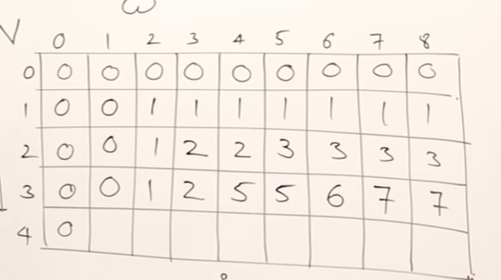 ω
V 0 1 2 3 4 5 6 7 8
0 0 0 0 0 0 0 0 0 0
1 0 0 1 1 1 1 1 1 1
2 0 0 1 2 2 3 3 3 3
3 0 0 1 2 5 5 6 7 7
4 0